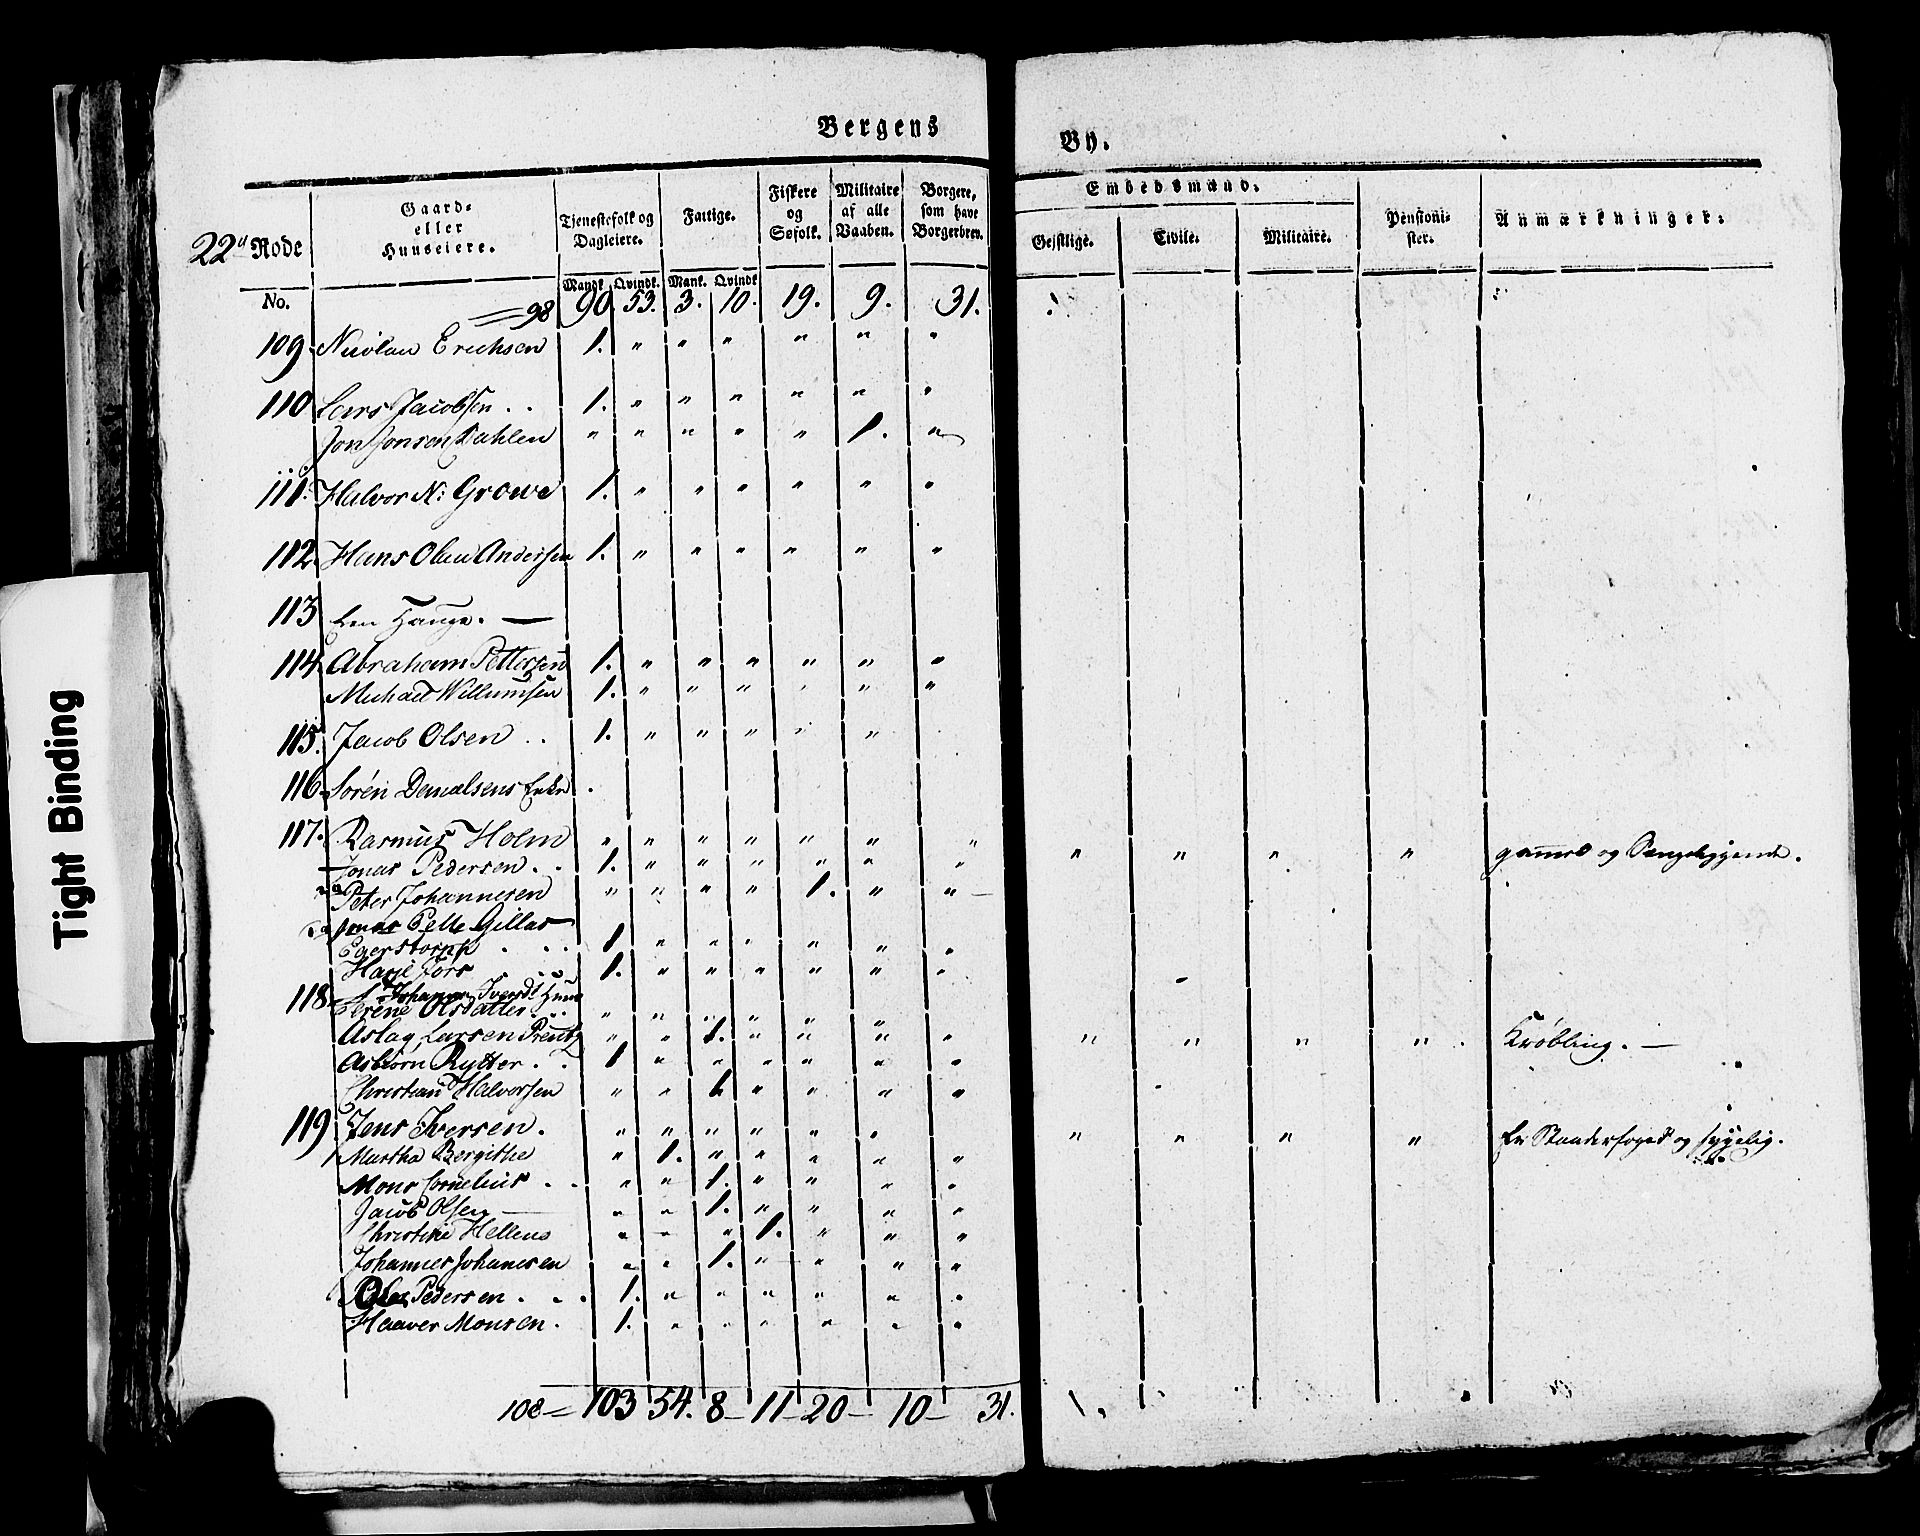 Bergens By.
22d Rode
No.
Gaard-
eller
Huuseiere.
Tjenestefolk og
Dagleiere.
Mandk. Qvindk.
Fattige.
Mank. Qvindk
Fiskere
og
Søfolk.
Militaire
af alle
Vaaben.
Borgere,
som have
Borgerbrev.
Embedsmænd.
Gejstlige. Civile. Militaire.
Pensioni-
ster.
Anmærkninger.
98 90. 53. 3. 10. 19. 9. 31.
109. Nicolau Erichsen 1. " " " " " "
110 Lars Jacobsen . . 1. " " " " " "
Jon Jonsen Dahlen " " " " " 1. "
111. Halvor N: Growe 1. " " " " " "
112. Hans Olau Andersen 1. " " " " " "
113 Een Hauge. —
114. Abraham Pettersen 1. " " " " " "
Michael Willumsen 1. " " " " " "
115. Jacob Olsen . . 1. " " " " "
116. Sören Danielsens Enke .
117. Rasmus Holm " " " " " " " " " " " gammel og Sengeliggende.
Jonas Pedersen . . 1. " " " " " "
Peter Johannesen " " " " 1. " " —
Jonas Pelle Gillas
Egerstorph . . . 1 " " " " " "
Harje Fors . . 1. " " " " " "
118. Johannes Iversds Huus
Serene Olsdatter . . . " " " " " "
Aslag Larsen Prentz " " 1. " " " " " " " " Krøbling. —
Asbiörn Rytter . . 1 " " " " " "
Christian Halvorsen " " 1. " " " "
119 Jens Iversen. " " " " " " " " " " Er Stauderfoged og sygelig.
Martha Bergithe " 1. " " " " "
Mons Cornelius . . " " 1. " " " "
Jacob Olsen — " " 1. " " " "
Christine Hellens " " " 1. " " "
Johannes Johanesen " " 1. " " " "
Ole Pedersen . . . 1. " " " " " "
Haaver Monsen . 1. " " " " " "
108 = 103 54. 8 — 11 — 20 — 10 — 31. 1.
Tight Binding